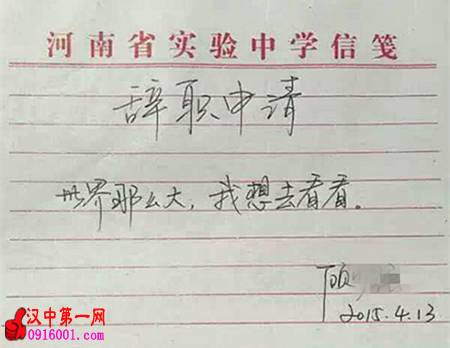 河南省实验中学信笺
辞职申请
世界那么大，我想去看看。
顾
2015.4.13
汉中第一网
0916001.com